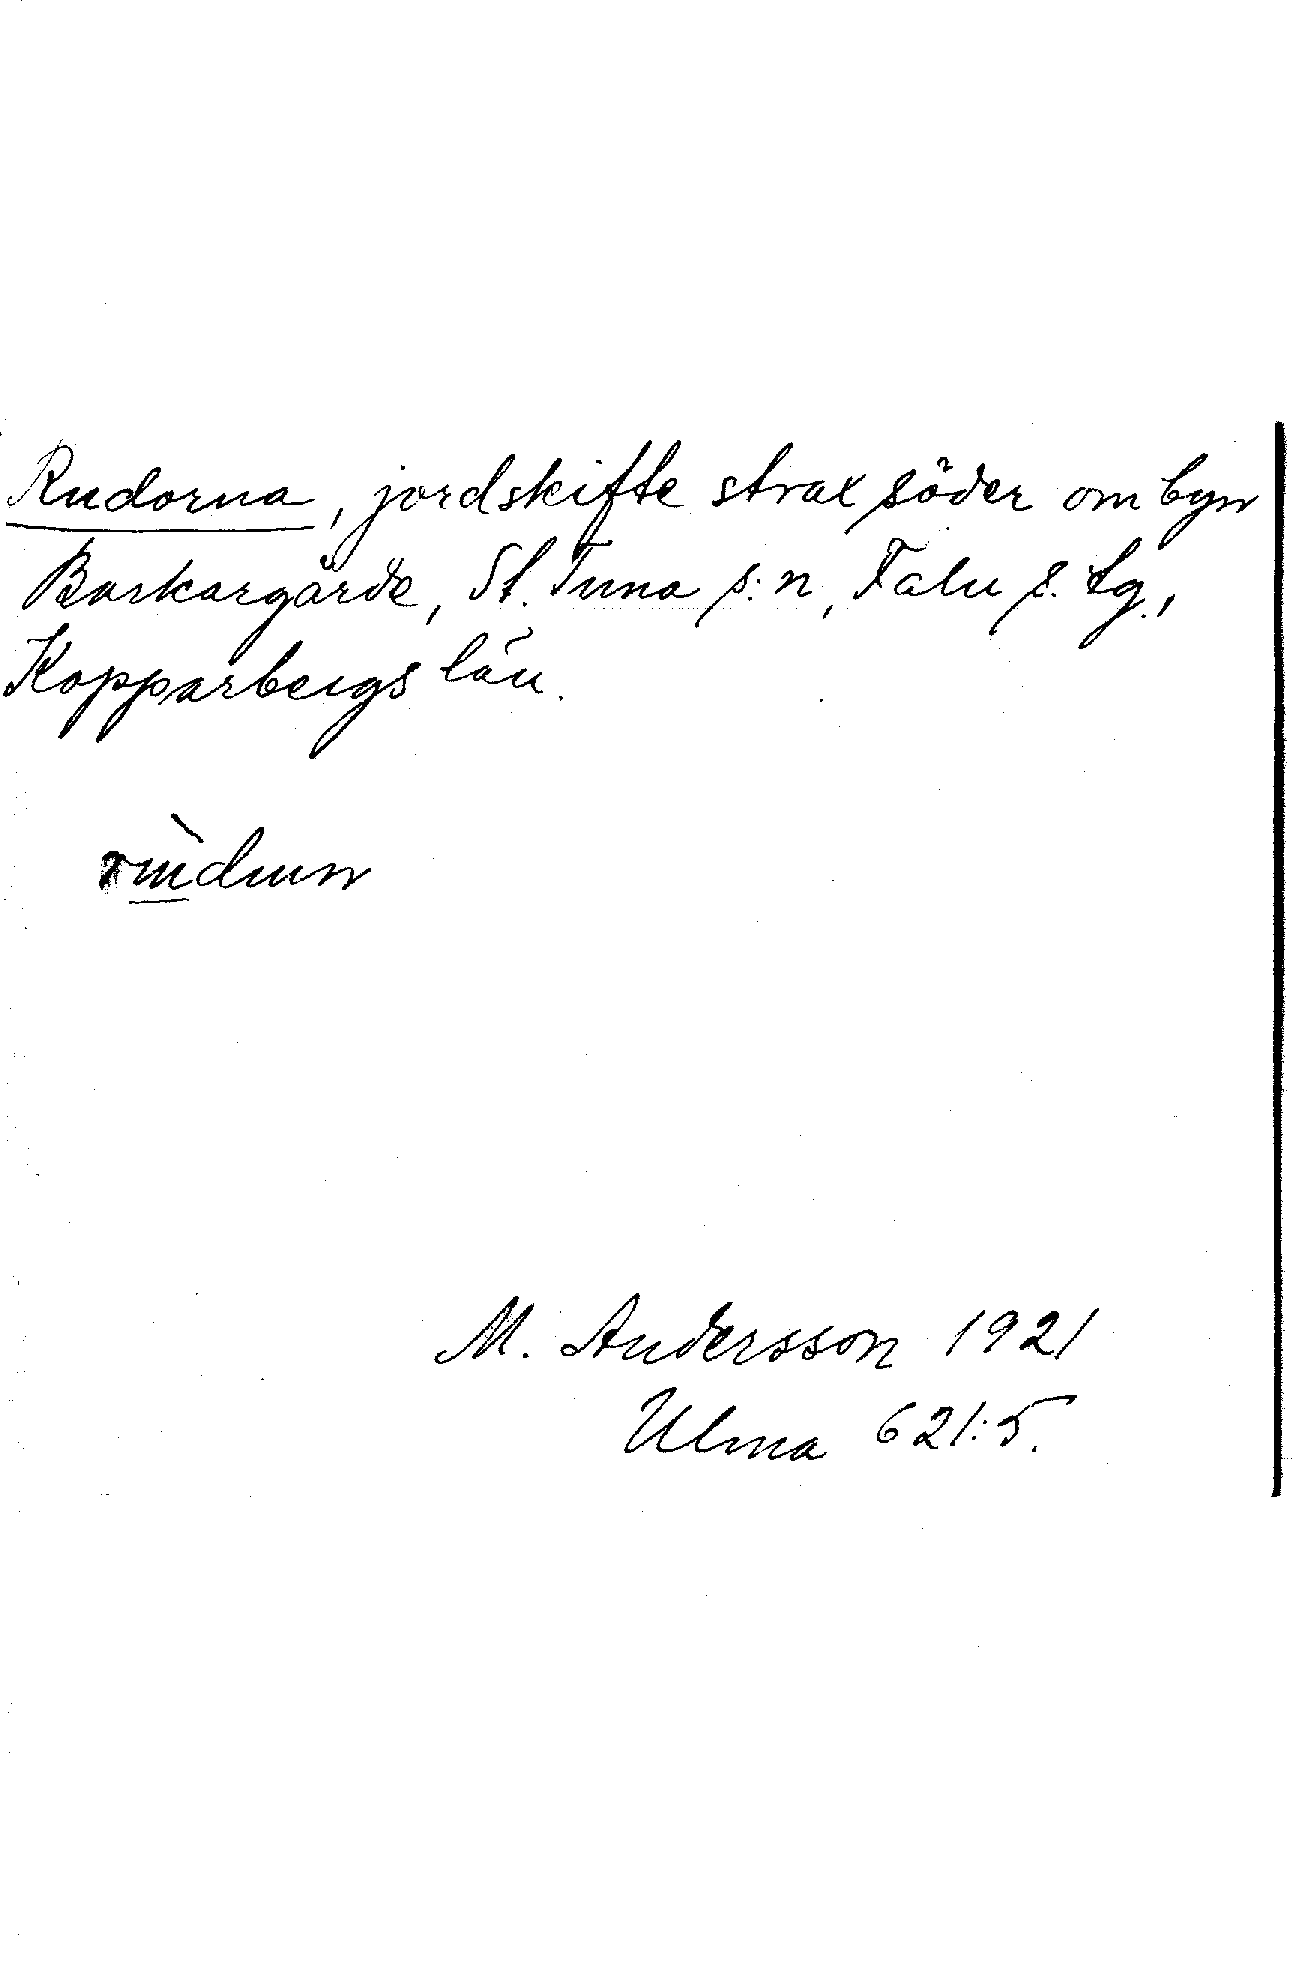 Rudorna, jordskifte strax söder om byn
Barkargärde, St. Tuna s:n, Falu s. tg.,
Kopparbergs län.
M. Andersson 1921
Ulma 621:5.